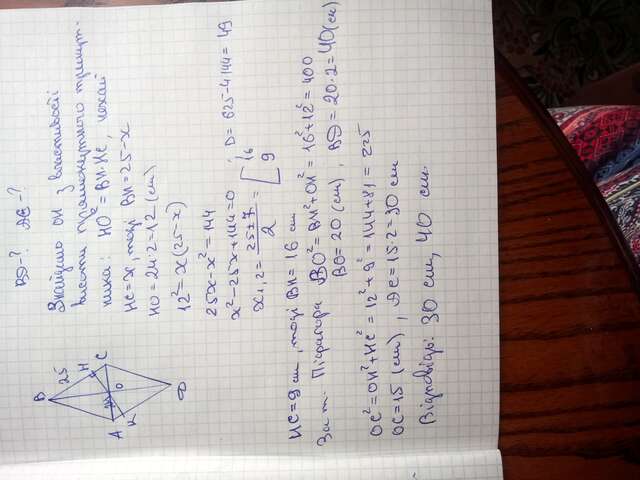 BD-? AC-?
B
25
H
A
24
C
K
O
D
Знайдемо OH з властивості
висоти прямокутного трикут-
ника: HO² = BH·HC, нехай
HC = x, тоді BH = 25-x
HO = 24:2 = 12 (см)
12² = x(25-x)
25x - x² = 144
x² - 25x + 144 = 0 ; D = 625 - 4·144 = 49
x₁,₂ = (25±7)/2 = [ 16 9
HC = 9 см, тоді BH = 16 см
За т. Піфагора BO² = BH² + OH² = 16² + 12² = 400
BO = 20 (см), BD = 20·2 = 40 (см)
OC² = OH² + HC² = 12² + 9² = 144 + 81 = 225
OC = 15 (см), AC = 15·2 = 30 см
Відповідь: 30 см, 40 см.